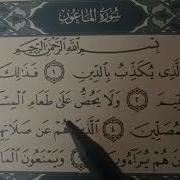 سُورَةُ الْمَاعُونِ
بِسْمِ اللَّهِ الرَّحْمَٰنِ الرَّحِيمِ
الَّذِى يُكَذِّبُ بِالدِّينِ ١ فَذَٰلِكَ
ـتِيمَ ٢ وَلَا يَحُضُّ عَلَىٰ طَعَامِ الْمِسْـ
ـمُصَلِّينَ ٤ الَّذِ هُمْ عَن صَلَاتِهـ
ـنَ هُمْ يُرَآءُونَ ٦ وَيَمْنَعُونَ الْمَا